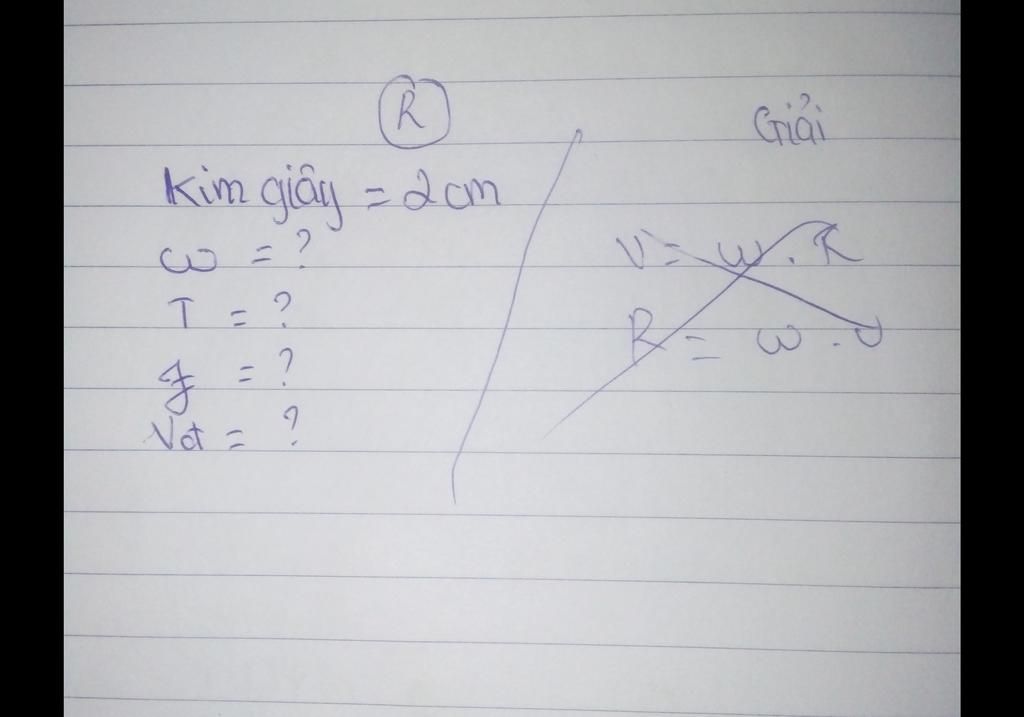 R
Kim giây = 2 cm
ω = ?
T = ?
f = ?
Vot = ?
Giải
V = ω . R
R = ω . v